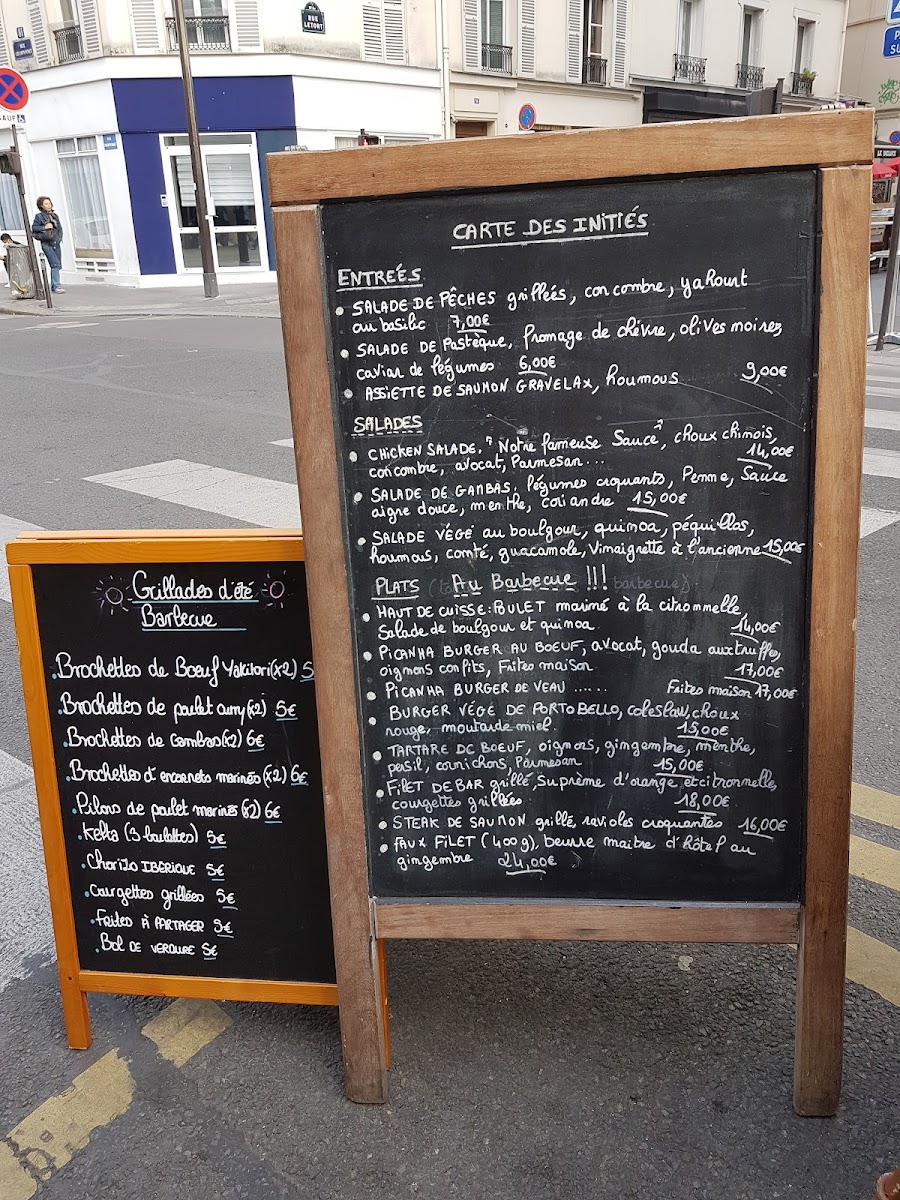 RUE
LETORT
SAUF
LE DELICE
P
SU
CARTE DES INITIÉS
ENTREÉS
• SALADE DE PÊCHES grillées, concombre, yahourt
au basilic 7,00€
• SALADE DE Pastèque, fromage de chèvre, olives noires,
caviar de légumes 6,00€
• ASSIETTE DE SAUMON GRAVELAX, houmous 9,00€
SALADES
• CHICKEN SALADE, "Notre fameuse Sauce", choux chinois,
concombre, avocat, Parmesan... 14,00€
• SALADE DE GAMBAS, légumes croquants, Penne, Sauce
aigre douce, menthe, coriandre 15,00€
• SALADE VÉGÉ au boulgour, quinoa, péquillos,
houmous, comté, guacamole, Vinaigrette à l'ancienne 15,00€
PLATS Au Barbecue !!! barbecue)
• HAUT DE CUISSE: POULET mariné à la citronnelle,
Salade de boulgour et quinoa 14,00€
• PICANHA BURGER AU BOEUF, avocat, gouda aux truffes,
oignons confits, Frites maison 17,00€
• PICANHA BURGER DE VEAU ...... Frites maison 17,00€
• BURGER VÉGÉ DE PORTOBELLO, coleslaw, choux
rouge, moutarde miel. 15,00€
• TARTARE DE BOEUF, oignons, gingembre, menthe,
persil, cornichons, Parmesan 15,00€
• FILET DE BAR grillé, Suprème d'orange et citronnelle,
courgettes grillées 18,00€
• STEAK DE SAUMON grillé, ravioles croquantes 16,00€
• FAUX FILET (400g), beurre maitre d'hôtel au
gingembre 24,00€
Grillades d'été
Barbecue
• Brochettes de Boeuf Yakitori (x2) 5
• Brochettes de poulet curry (x2) 5€
• Brochettes de Gambas (x2) 6€
• Brochettes d'encornets marinés (x2) 6€
• Pilons de poulet marinés (x2) 6€
• Kefta (3 boulettes) 5€
• Chorizo IBÉRIQUE 5€
• Courgettes grillées 5€
• Frites À PARTAGER 3€
• Bol DE VERDURE 5€